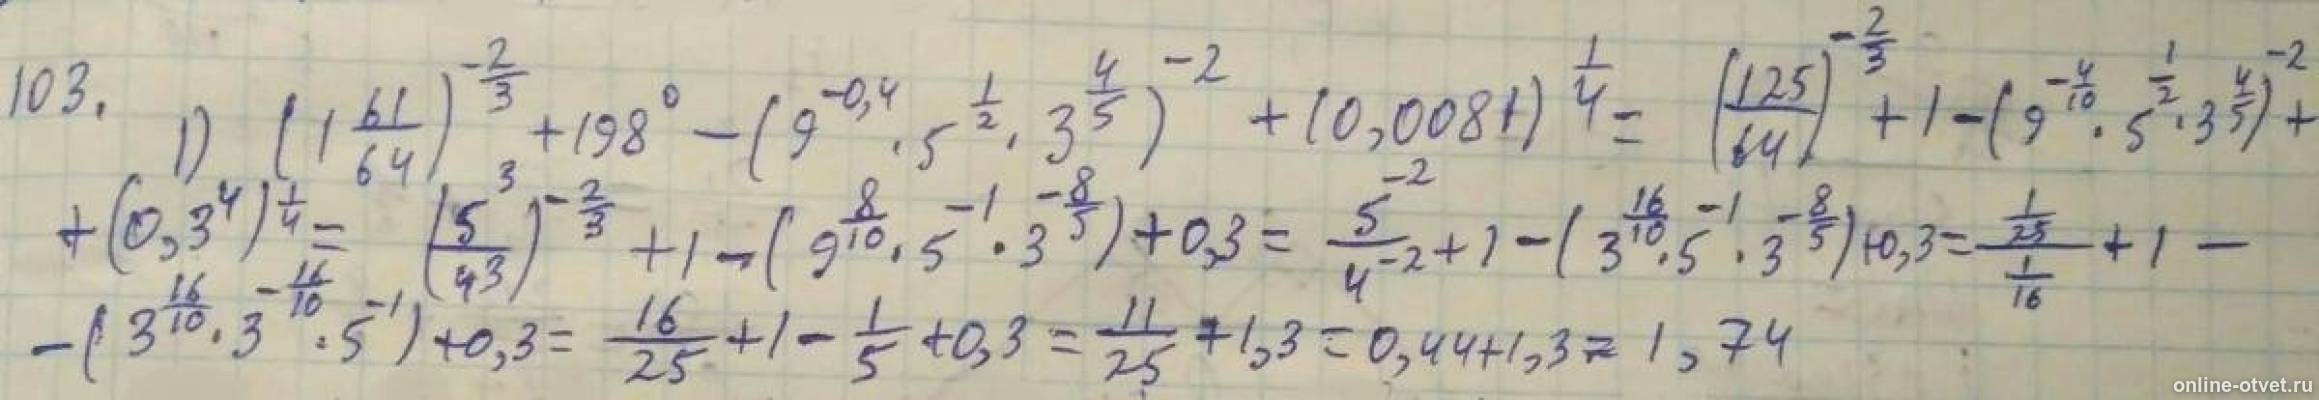 103. 1) (1 61/64)^(-2/3) + 198^0 - (9^(-0,4) · 5^(1/2) · 3^(4/5))^(-2) + (0,0081)^(1/4) = (125/64)^(-2/3) + 1 - (9^(-4/10) · 5^(1/2) · 3^(4/5))^(-2) +
+ (0,3^4)^(1/4) = (5^3/4^3)^(-2/3) + 1 - (9^(8/10) · 5^(-1) · 3^(-8/5)) + 0,3 = 5^(-2)/4^(-2) + 1 - (3^(16/10) · 5^(-1) · 3^(-8/5)) + 0,3 = (1/25)/(1/16) + 1 -
- (3^(16/10) · 3^(-16/10) · 5^(-1)) + 0,3 = 16/25 + 1 - 1/5 + 0,3 = 11/25 + 1,3 = 0,44 + 1,3 = 1,74
online-otvet.ru